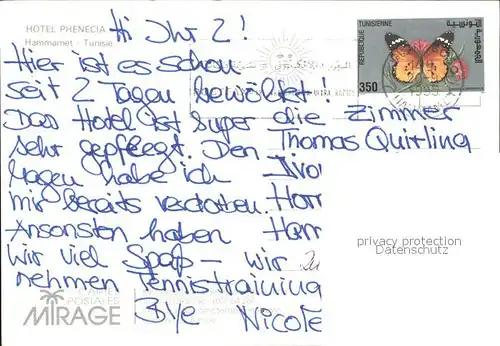 HOTEL PHENECIA
Hammamet - Tunisie
Hi Ihr 2!
Hier ist es schon
seit 2 Tagen bewölkt!
Das Hotel ist super die Zimmer
sehr gepflegt. Den
Magen habe ich
mir bereits verdorben.
Ansonsten haben
wir viel Spaß – wir
nehmen Tennistraining
Bye Nicole
Thomas Quirling
Herr
Herr
REPUBLIQUE TUNISIENNE
350
privacy protection
Datenschutz
CARTES
POSTALES
MIRAGE